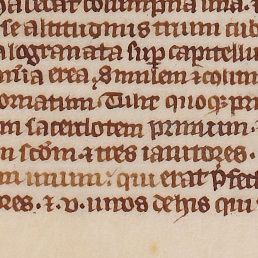 habebat columpna una.
se altitudinis trium cub
alogranata sup capitellu
mia erea. Similem & colum
ornatum. Tulit quoq; pri
m sacerdotem primum.
m scdm. & tres ianitores.
m unum. qui erat pfec
res. & .v. uiros de his qui